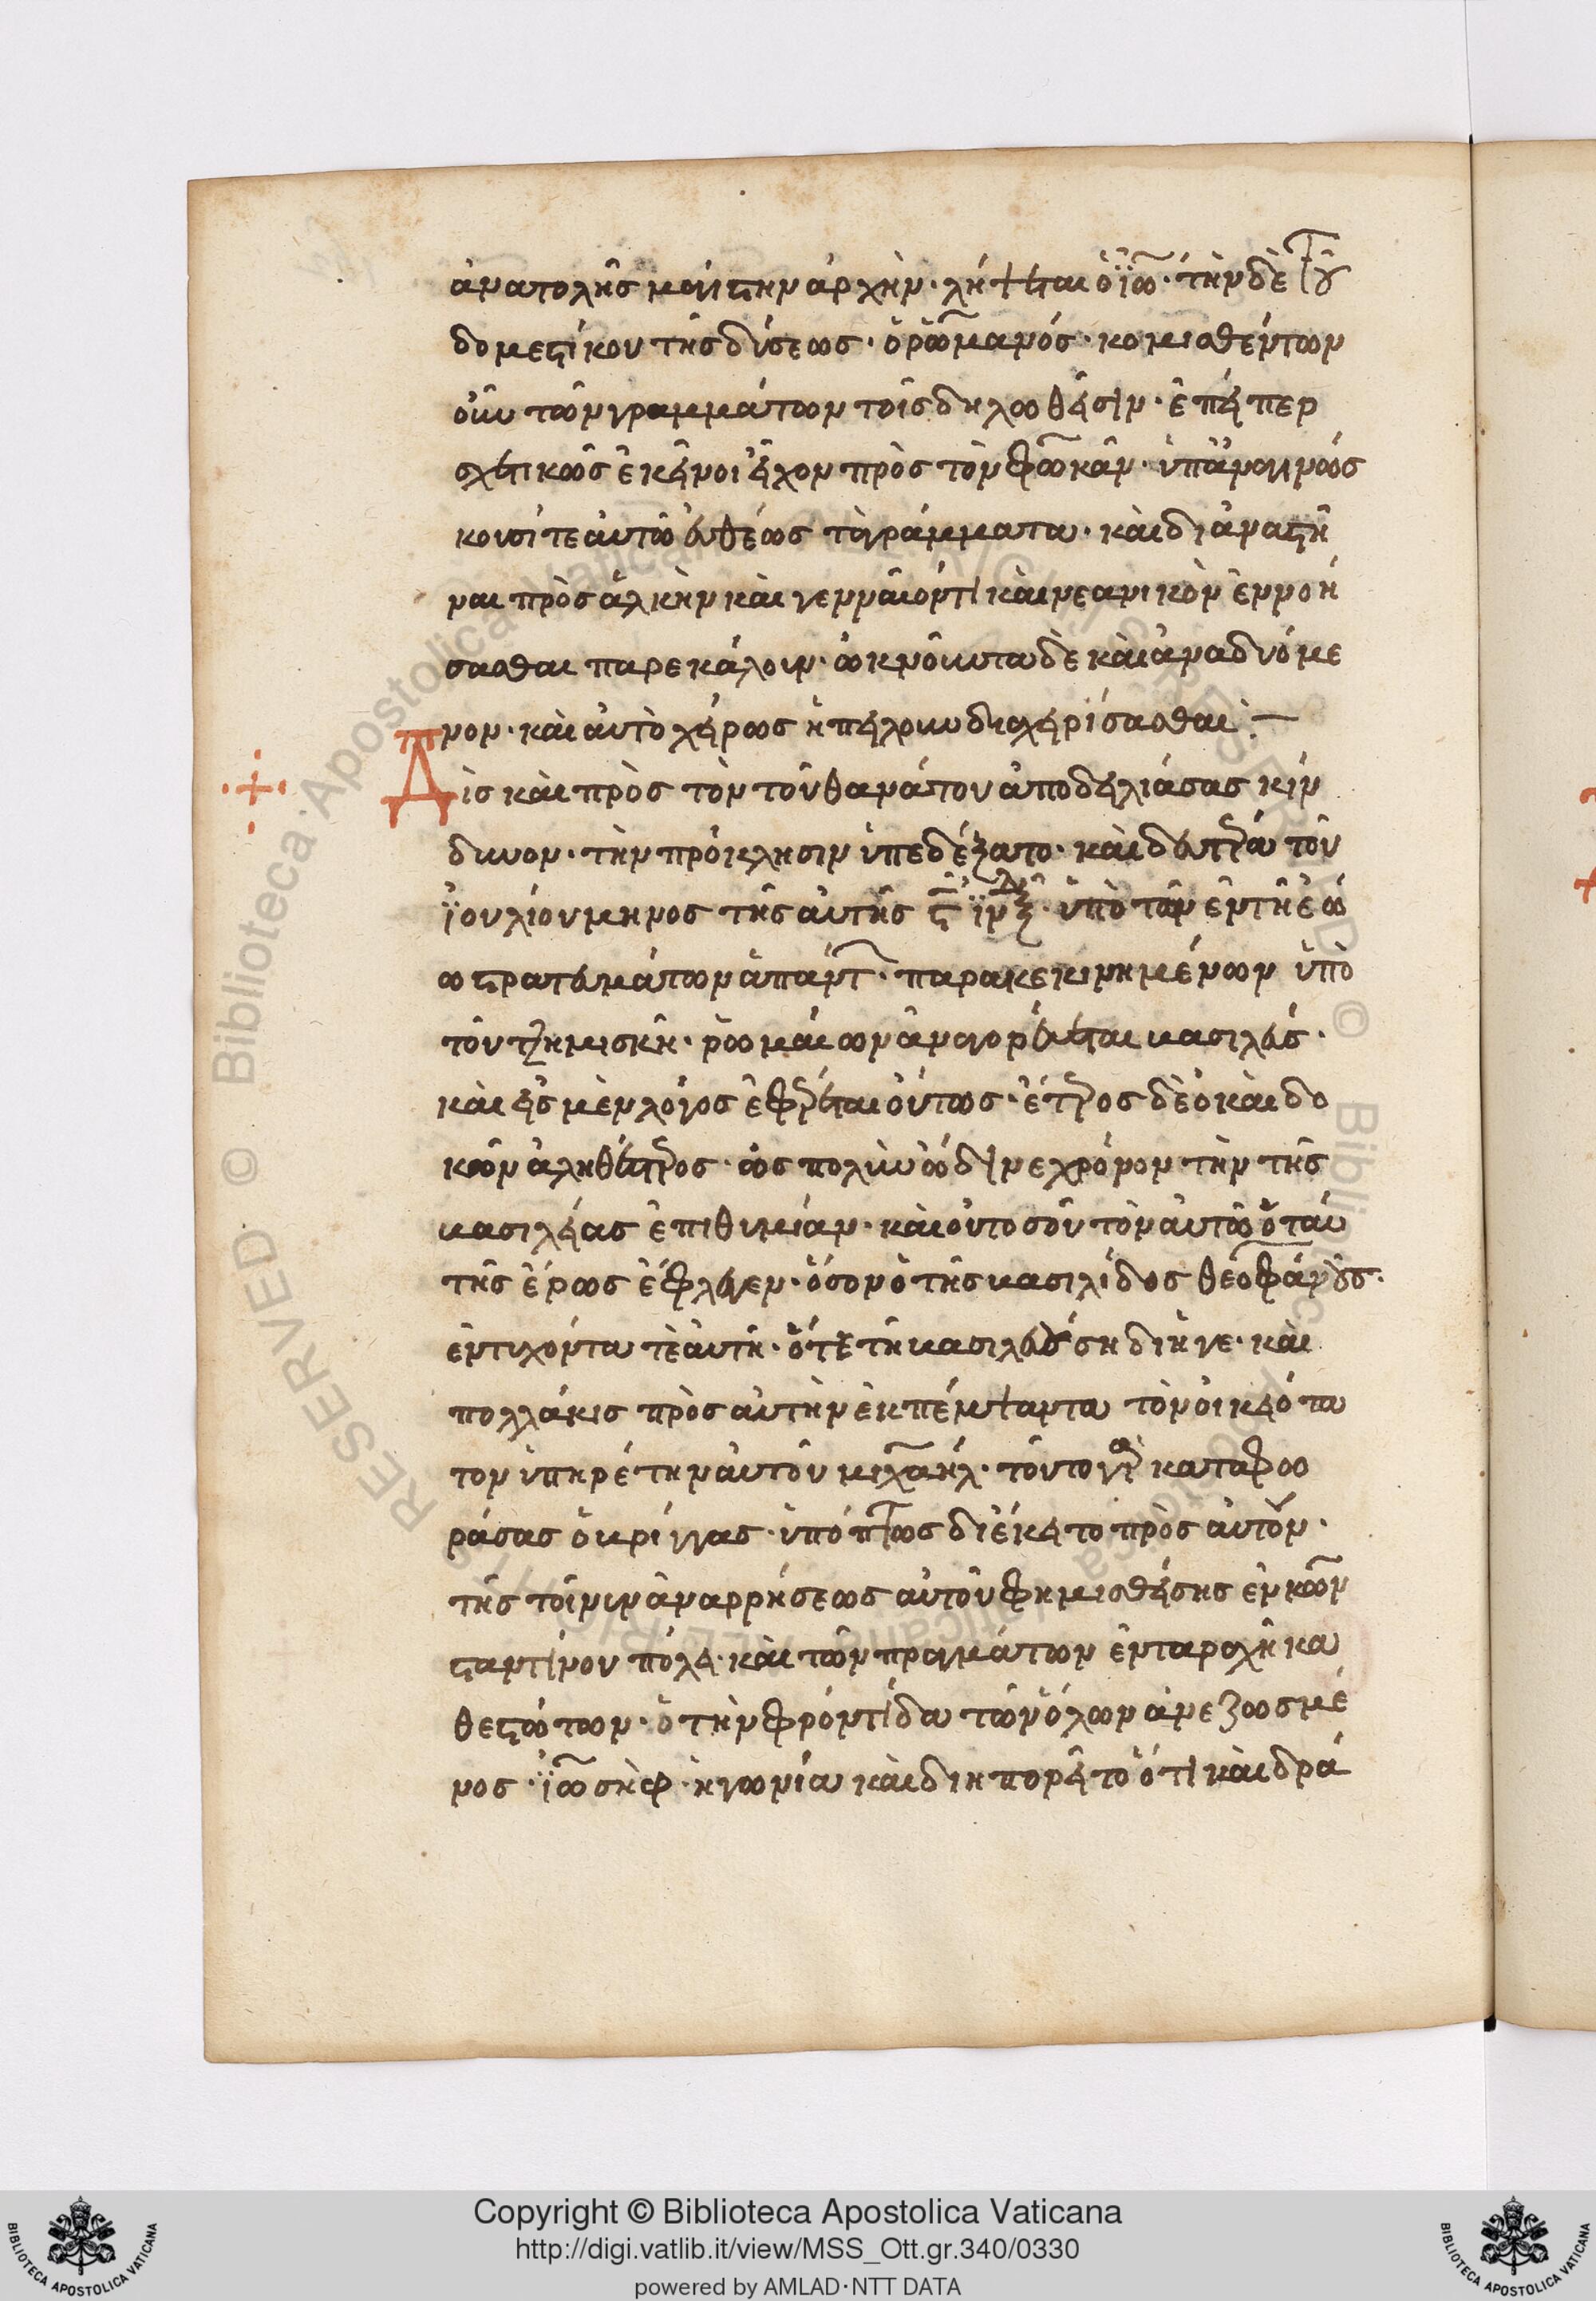 ἀνατολῆς μεγίστην ἀρχὴν· λήψεται ὁ ϊω· τὴν δὲ τοῦ
δομεστίκου τῆς δύσεως· ὁ ρωμανός· κομισθέντων
οὖν τῶν γραμμάτων τοῖς δηλωθεῖσιν· ἐπείπερ
σχετικῶς ἐκεῖνοι εἶχον πρὸς τὸν φωκᾶν· ὑπαναγινώσ
κουσί τε αὐτῶ εὐθέως τὰ γράμματα· καὶ διαναστῆ
ναι πρὸς ἀλκὴν καὶ γενναῖόν τι καὶ νεανικὸν ἐννοή
σασθαι παρεκάλουν· ὀκνοῦντα δὲ καὶ ἀναδυόμε
νον· καὶ αὐτὸ χείρως ἠπείλουν διαχειρίσασθαι:—
Δὶς καὶ πρὸς τὸν τοῦ θανάτου ἀποδειλιάσας κίν
δυνον· τὴν πρόκλησιν ὑπεδέξατο· καὶ δευτέρα τοῦ
ϊουλίου μηνος τῆς αὐτῆς ϛ ϊνδ· ὑπὸ τῶν ἐν τῆ ἑώ
ω στρατευμάτων ἁπάντ· παρακεκινημένων ὑπὸ
τοῦ τζημισκῆ· ρωμαίων ἀναγορεύεται βασιλεύς·
καὶ εἷς μὲν λόγος ἐφέρεται οὕτως· ἕτερος δὲ ὁ καὶ δο
κῶν ἀληθέστερος· ὡς πολὺν ὤδινε χρόνον τὴν τῆς
βασιλείας ἐπιθυμίαν· καὶ οὐ τοσοῦτον αὐτῶ ὁ ταύ
της ἔρως ἔφλεγεν· ὅσον ὁ τῆς βασιλίδος θεοφάνους·
ἐντυχόντα τὲ αὐτῆ· ὅτε τῆ βασιλευούση διῆγε· καὶ
πολλάκις πρὸς αὐτὴν ἐκπέμψαντα τὸν οἰκειότα
τον ὑπηρέτην αὐτοῦ μιχαήλ· τοῦτο γὰρ καταφω
ράσας ὁ βρίγγας· ὑπόπτως διέκειτο πρὸς αὐτόν·
τῆς τοίνυν ἀναρρήσεως αὐτοῦ φημισθείσης ἐν κων
σταντίνου πόλει· καὶ τῶν πραγμάτων ἐν ταραχῆ κα
θεστώτων· ὁ τὴν φροντίδα τῶν ὅλων ἀνεζωσμέ
νος· ϊωσὴφ· ἠγωνία καὶ διηπορεῖτο ὅτι καὶ δρά
Copyright © Biblioteca Apostolica Vaticana
http://digi.vatlib.it/view/MSS_Ott.gr.340/0330
powered by AMLAD·NTT DATA